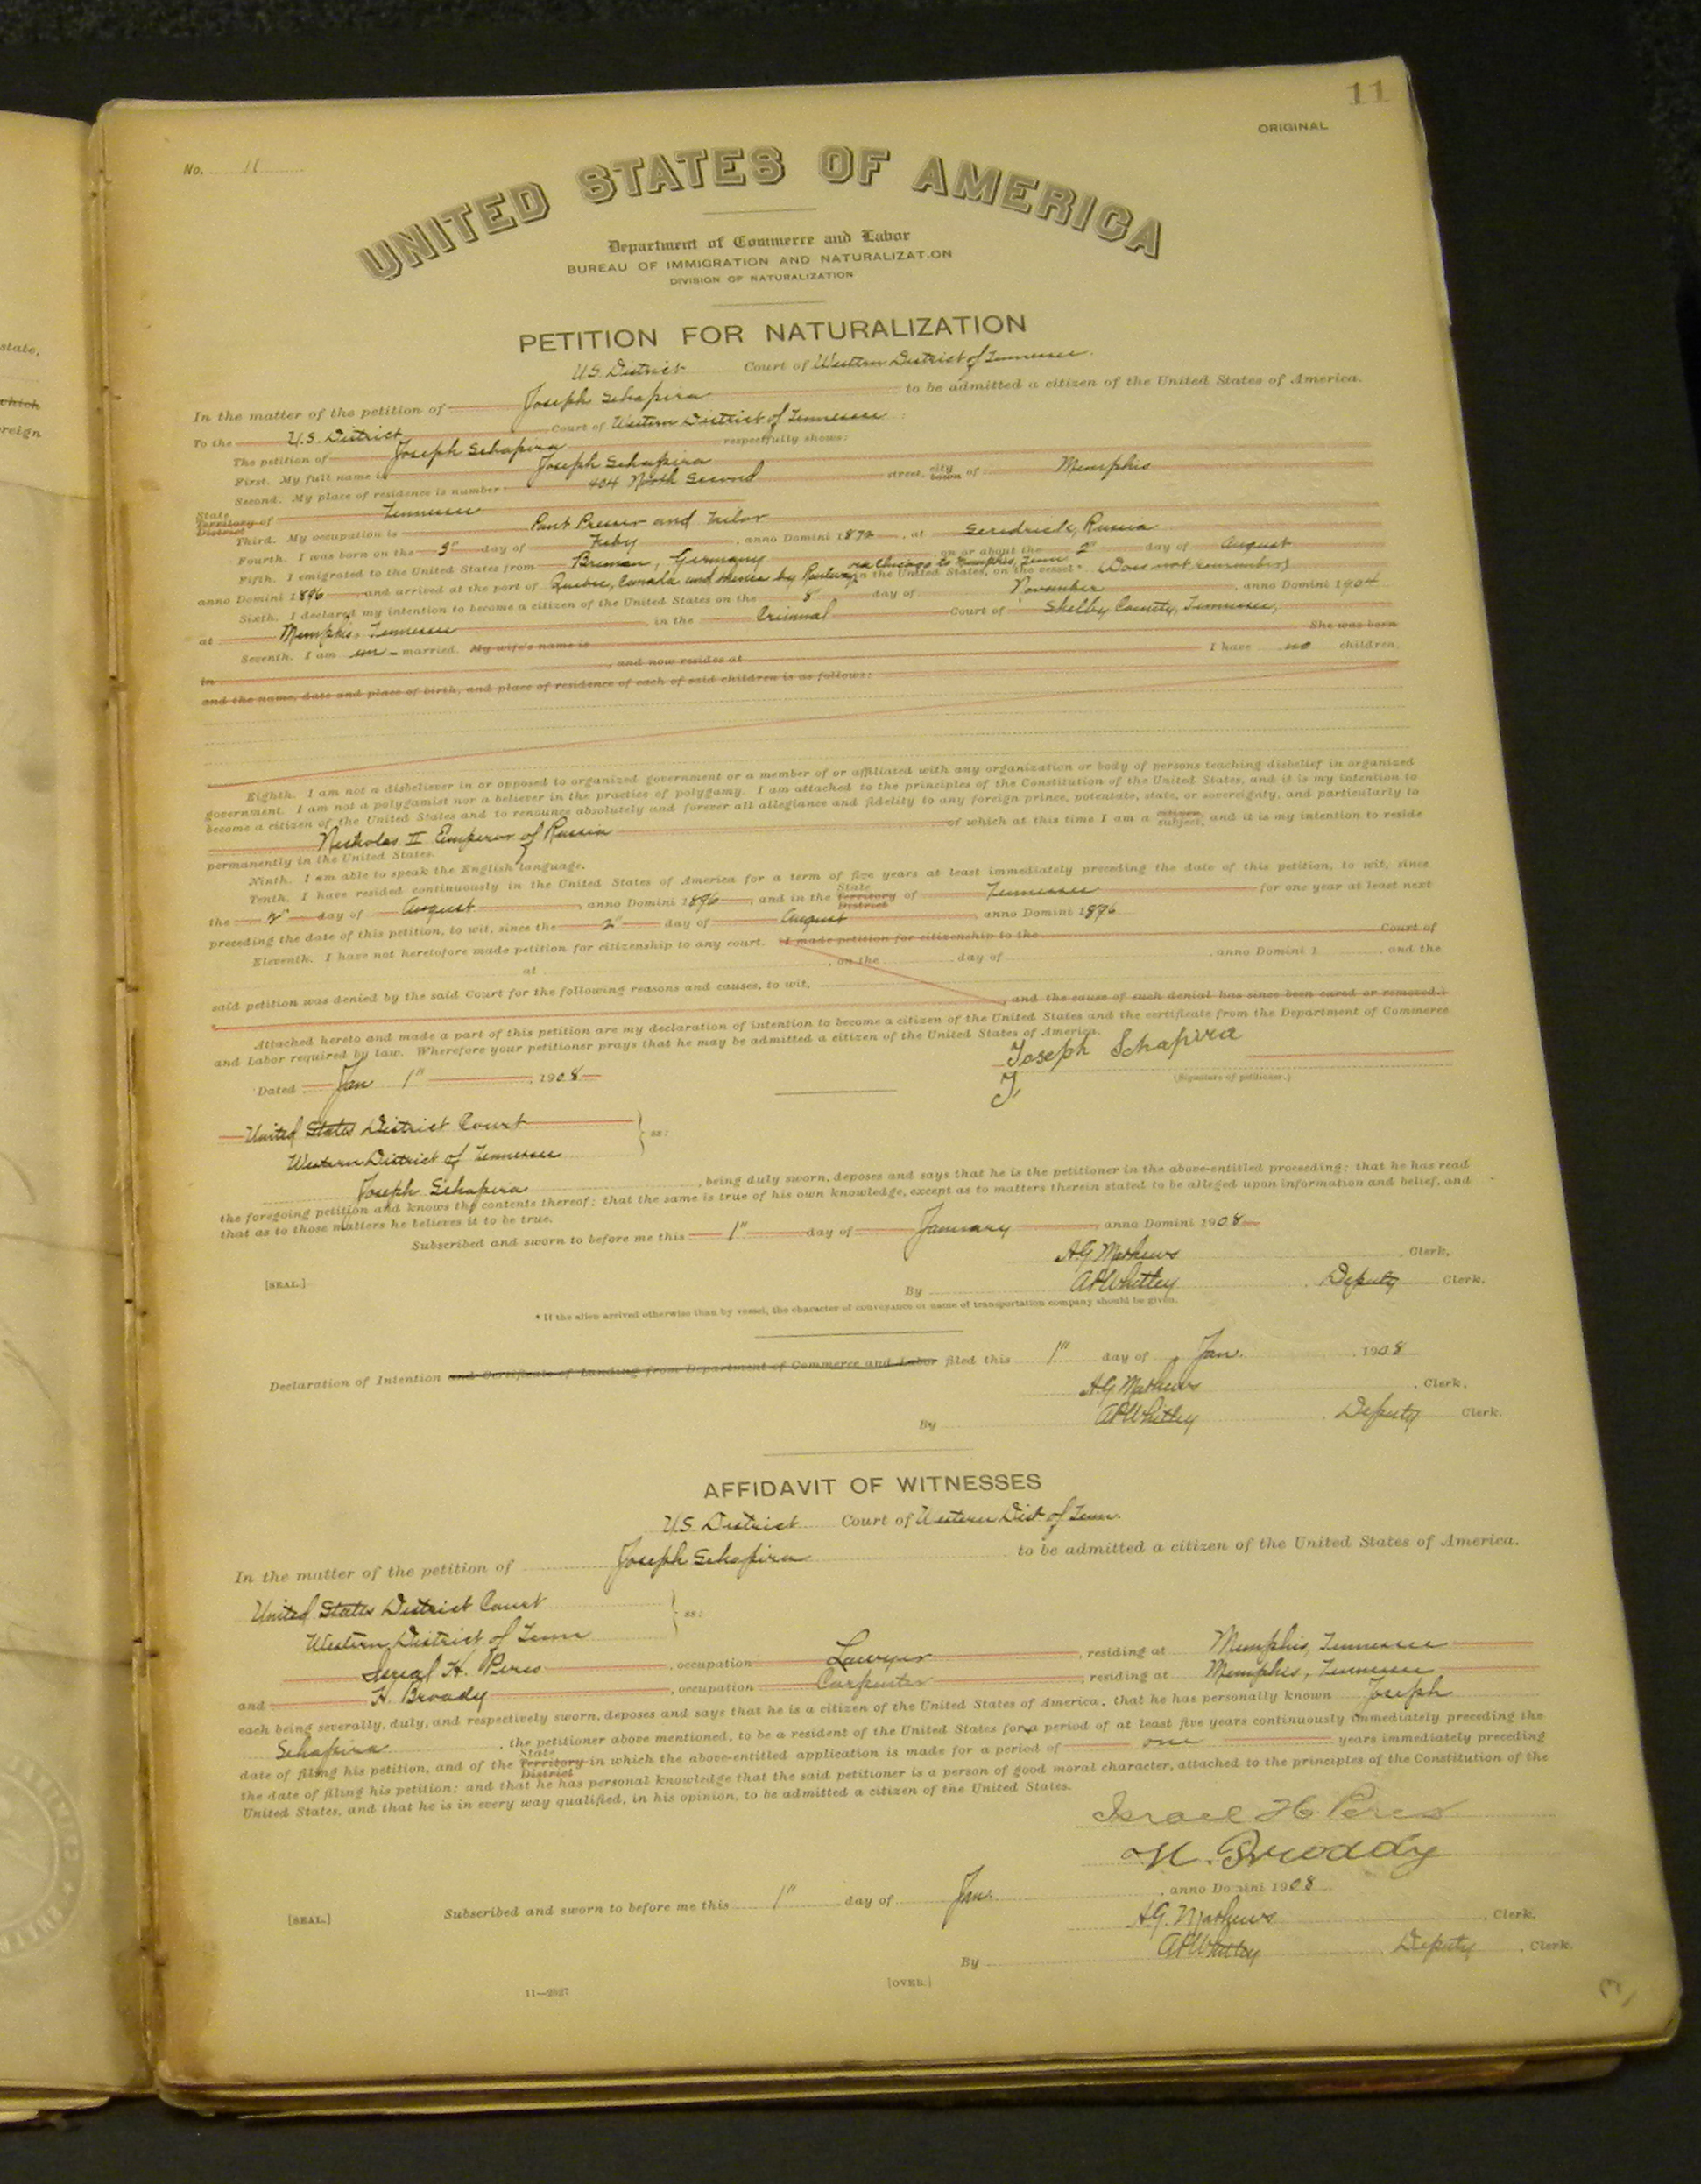 11
ORIGINAL
No. 11
UNITED STATES OF AMERICA
Department of Commerce and Labor
BUREAU OF IMMIGRATION AND NATURALIZATION
DIVISION OF NATURALIZATION
PETITION FOR NATURALIZATION
U.S. District Court of Western District of Tennessee.
In the matter of the petition of Joseph Schapira to be admitted a citizen of the United States of America.
To the U.S. District Court of Western District of Tennessee :
The petition of Joseph Schapira respectfully shows:
First. My full name is Joseph Schapira
Second. My place of residence is number 404 North Second street, city town of Memphis
State Territory District of Tennessee
Third. My occupation is Pant Presser and Tailor
Fourth. I was born on the 3" day of Feby, anno Domini 1872, at Russia
Fifth. I emigrated to the United States from Bremen, Germany, on or about the 2" day of August
anno Domini 1896, and arrived at the port of Quebec, Canada and thence by Railway via Chicago to Memphis, Tenn in the United States, on the vessel* (Does not remember)
Sixth. I declared my intention to become a citizen of the United States on the 8" day of November, anno Domini 1904
at Memphis, Tennessee, in the Criminal Court of Shelby County, Tennessee,
Seventh. I am un-married. My wife's name is She was born
in , and now resides at I have no children
and the name, date and place of birth, and place of residence of each of said children is as follows:
Eighth. I am not a disbeliever in or opposed to organized government or a member of or affiliated with any organization or body of persons teaching disbelief in organized
government. I am not a polygamist nor a believer in the practice of polygamy. I am attached to the principles of the Constitution of the United States, and it is my intention to
become a citizen of the United States and to renounce absolutely and forever all allegiance and fidelity to any foreign prince, potentate, state, or sovereignty, and particularly to
Nicholas II Emperor of Russia of which at this time I am a citizen subject, and it is my intention to reside
permanently in the United States.
Ninth. I am able to speak the English language.
Tenth. I have resided continuously in the United States of America for a term of five years at least immediately preceding the date of this petition, to wit, since
the 2" day of August, anno Domini 1896, and in the State Territory District of Tennessee for one year at least next
preceding the date of this petition, to wit, since the 2" day of August, anno Domini 1896
Eleventh. I have not heretofore made petition for citizenship to any court. I made petition for citizenship to the Court of
at , on the day of , anno Domini 1 and the
said petition was denied by the said Court for the following reasons and causes, to wit,
, and the cause of such denial has since been cured or removed.
Attached hereto and made a part of this petition are my declaration of intention to become a citizen of the United States and the certificate from the Department of Commerce
and Labor required by law. Wherefore your petitioner prays that he may be admitted a citizen of the United States of America.
Joseph Schapira
(Signature of petitioner.)
Dated Jan 1", 1908
United States District Court
Western District of Tennessee } ss:
Joseph Schapira, being duly sworn, deposes and says that he is the petitioner in the above-entitled proceeding; that he has read
the foregoing petition and knows the contents thereof; that the same is true of his own knowledge, except as to matters therein stated to be alleged upon information and belief, and
that as to those matters he believes it to be true.
Subscribed and sworn to before me this 1" day of January, anno Domini 1908
A.G Mathews, Clerk.
[SEAL.] By A P Whitley Deputy Clerk.
* If the alien arrived otherwise than by vessel, the character of conveyance or name of transportation company should be given.
Declaration of Intention and Certificate of Landing from Department of Commerce and Labor filed this 1" day of Jan. 1908
A.G Mathews, Clerk.
By A P Whitley, Deputy Clerk.
AFFIDAVIT OF WITNESSES
U.S. District Court of Western Dist of Tenn.
In the matter of the petition of Joseph Schapira to be admitted a citizen of the United States of America.
United States District Court
Western District of Tenn } ss:
Isreal H. Peres, occupation Lawyer, residing at Memphis, Tennessee
and H. Broady, occupation Carpenter, residing at Memphis, Tennessee
each being severally, duly, and respectively sworn, deposes and says that he is a citizen of the United States of America; that he has personally known Joseph
Schapira, the petitioner above mentioned, to be a resident of the United States for a period of at least five years continuously immediately preceding the
date of filing his petition, and of the State Territory District in which the above-entitled application is made for a period of one years immediately preceding
the date of filing his petition; and that he has personal knowledge that the said petitioner is a person of good moral character, attached to the principles of the Constitution of the
United States, and that he is in every way qualified, in his opinion, to be admitted a citizen of the United States.
Israel H Peres
H. Broddy
Subscribed and sworn to before me this 1" day of Jan., anno Domini 1908
[SEAL.] A.G. Mathews, Clerk.
By A P Whitley Deputy, Clerk.
[OVER]